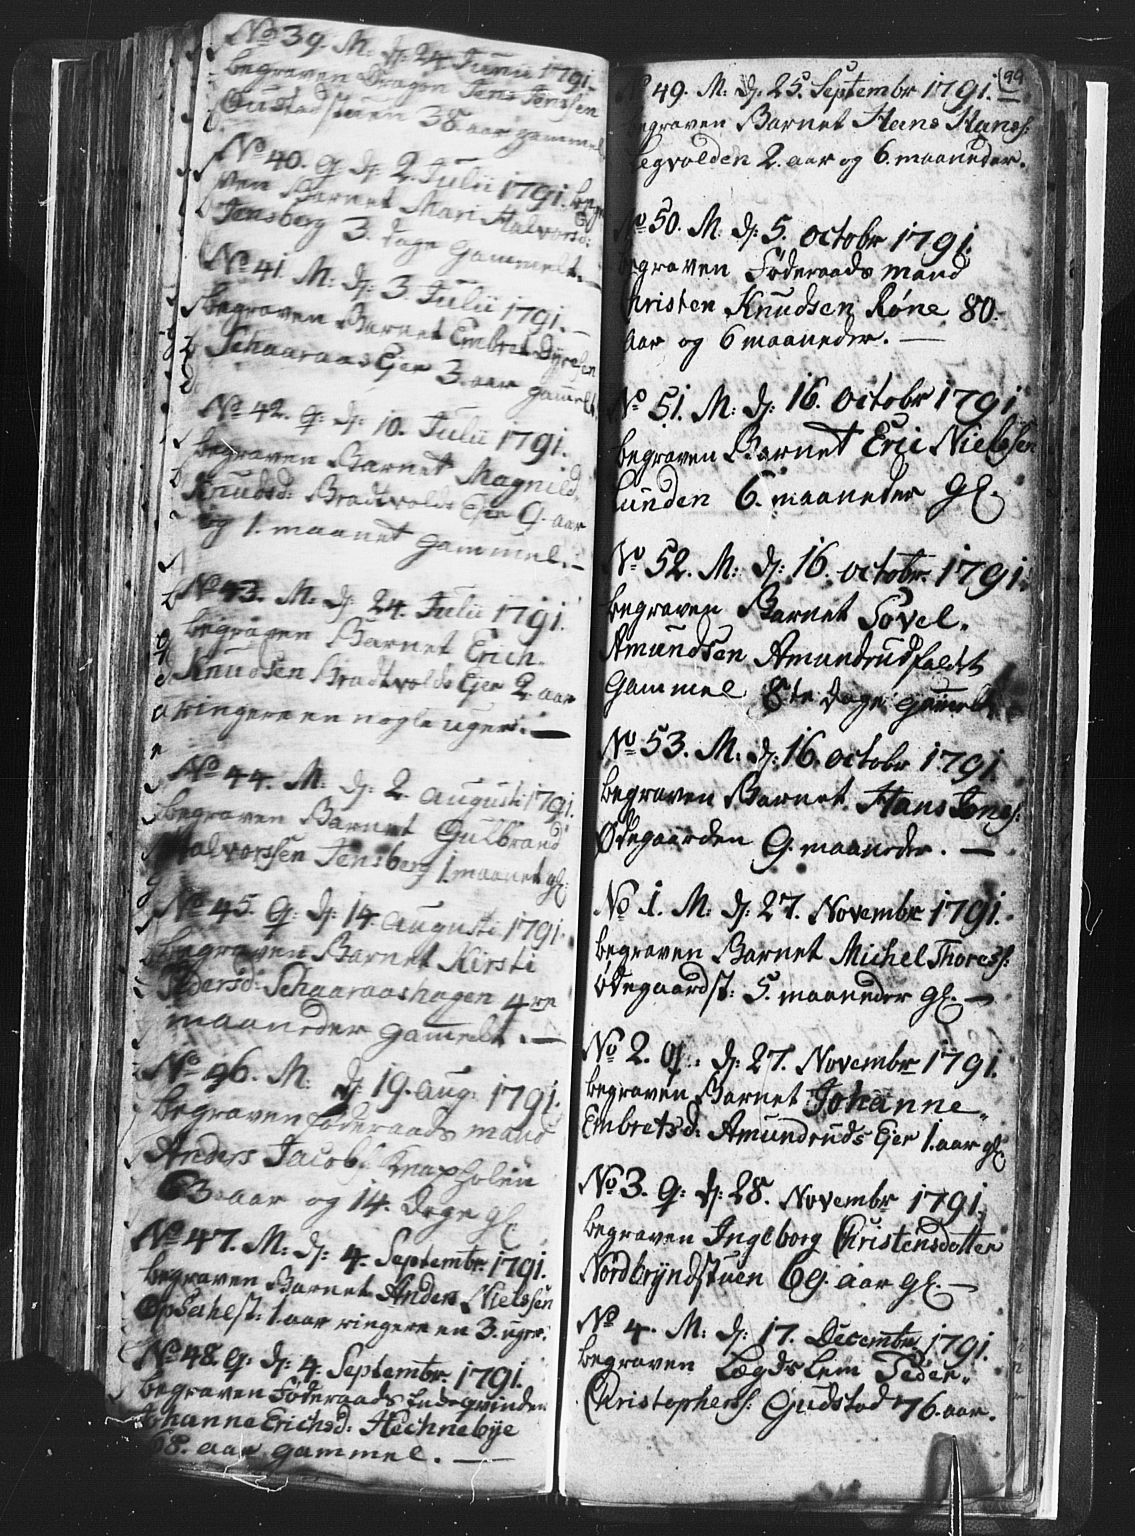 No 39. M. d: 24 Junii 1791.
begraven Dragon Jens Jenssen
Gustadstuen 38 aar gammel
No 40. Q d: 2. Julii 1791. begra
ven Barnet Mari Halvorsd:
Jensberg 3. dage gammelt. —
No 41. M: d: 3. Julii 1791. —
begraven Barnet Embret Dyresen
Schaaraas Ejer 3. aar gam̄elt
No 42. Q: d: 10. Julii 1791.
begraven Barnet Magnild
Knudsd: Bradtvolds Ejer 9. aar
og 1. maanet gammel. —
No 43. M: d: 24. Julii 1791.
begraven Barnet Erich.
Knudsen Bradtvolds Ejer 2 aar
ringere en nogle uger. —
No 44. M: d: 2. augusti 1791.
begraven Barnet Gulbrand
Halvorssen Jensberg 1. maanet gl:
No 45. Q: d: 14. augusti 1791.
begraven Barnet Kirsti
Pedersd: Schaaraashagen 4re
maaneder gam̄elt. —
No 46. M: d: 19. aug: 1791.
begraven føderaads mand
Anders Jacobs: Knapholen
63 aar og 14. dage gl.
No 47. M: d: 4. Septembr: 1791.
begraven Barnet Anders Nielssen
Opsahlst: 1. aar ringere en 3. uger.
No 48. Q: d: 4. Septembr. 1791.
begraven Føderaads Indeqvinden
Johanne Erichsd: Hechnebye
68. aar gammel. —
99
49. M: d: 25. Septembr 1791. —
begraven Barnet Hans Hanss:
Legvolden 2. aar og 6. maaneder.
No 50. M. d: 5. octobr 1791.
begraven Føderaads mand
Christen Knudsen Røne 80.
aar og 6 maaneder. —
No 51. M: d: 16. octobr 1791
begraven Barnet Eric Nielssen
Lunden 6. maaneder gl.
No 52. M: d: 16. octobr. 1791.
begraven Barnet Povel.
Amundsen Amundrudfaldet
gammel 8te dage gam̄elt
No 53. M. d: 16. octobr 1791.
begraven Barnet Hans Jens:
Ødegaarden 9. maaneder. —
No 1. M: d: 27. Novembr 1791.
begraven Barnet Michel Thoress:
Ødegaardst: 5. maaneder gl. —
No 2. Q: d: 27. Novembr 1791.
begraven Barnet Johanne.
Embretsd: Amundruds Ejer 1. aar gl
No 3. Q: d: 28. Novembr 1791.
begraven Ingeborg Christensdotter
Nordbryndstuen 69. aar gl. —
No 4. M: d: 17. Decembr. 1791.
begraven Lægdslem Peder.
Christophers: Gudstad 76. aar.